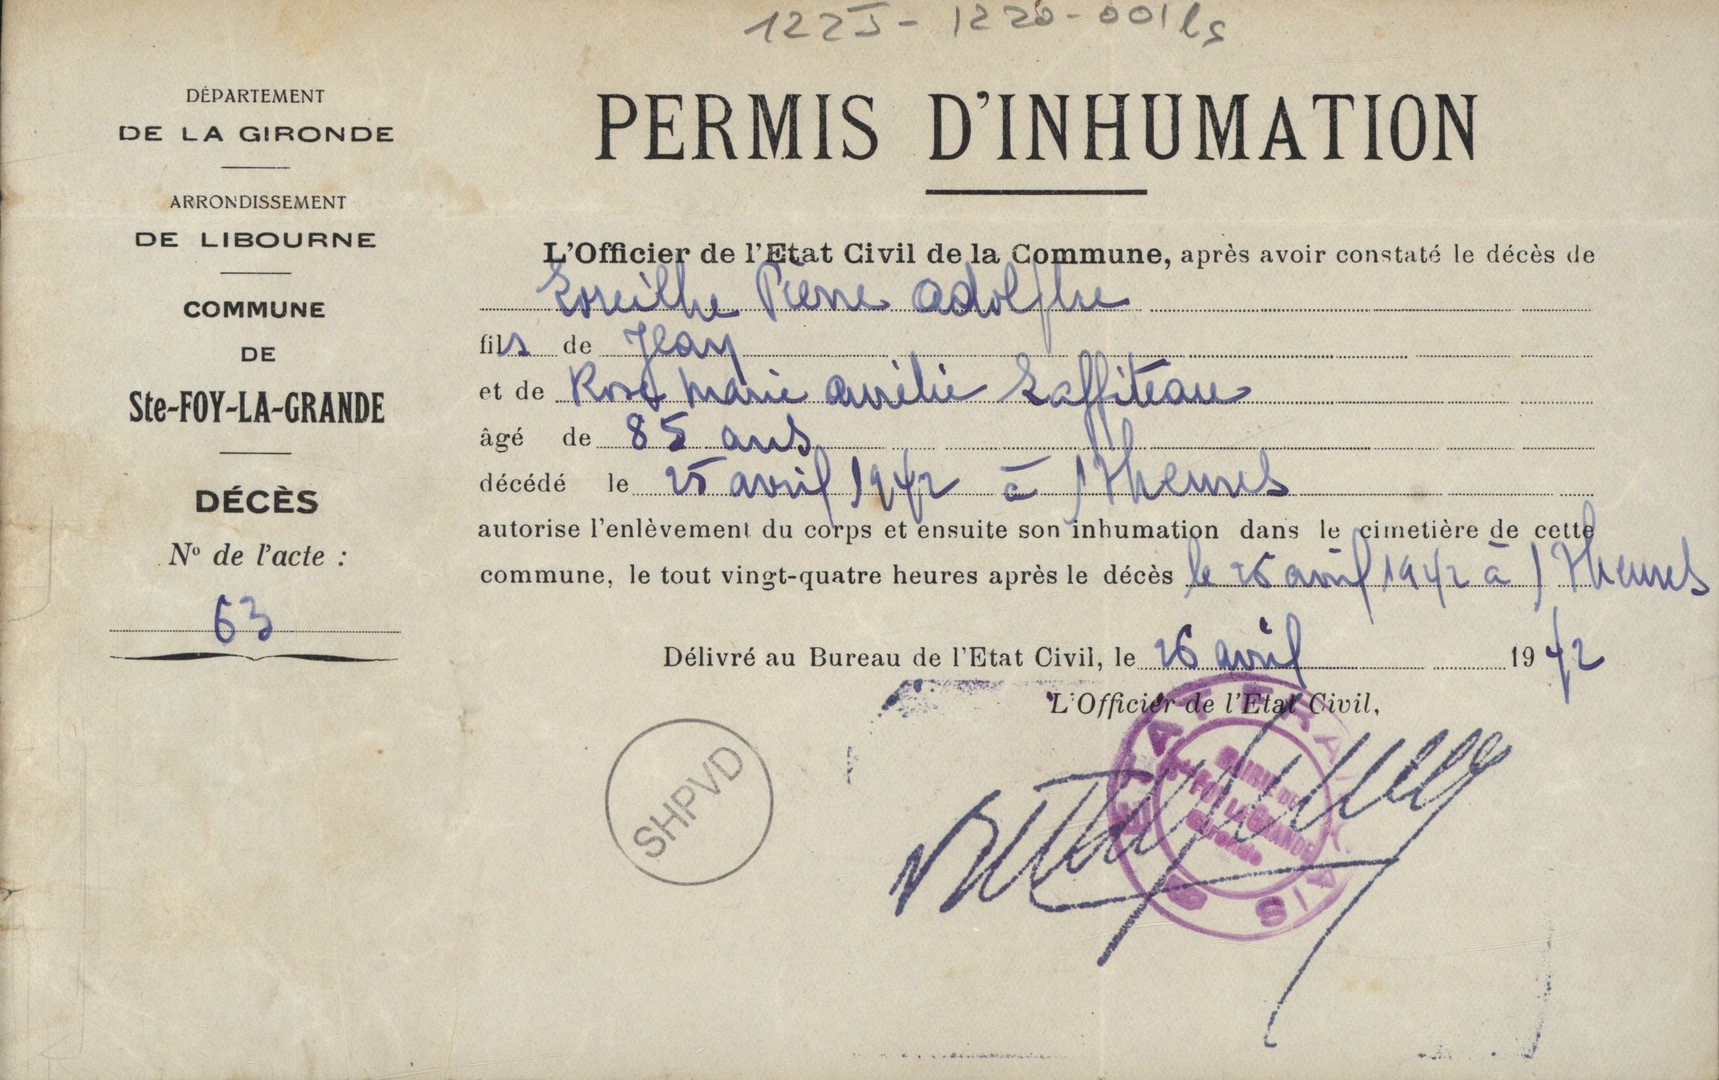 122J - 1220-001
DÉPARTEMENT
DE LA GIRONDE
ARRONDISSEMENT
DE LIBOURNE
COMMUNE
DE
Ste-FOY-LA-GRANDE
DÉCÈS
No de l'acte :
63
PERMIS D'INHUMATION
L'Officier de l'Etat Civil de la Commune, après avoir constaté le décès de
Loreilhe Pierre Adolphe
fils de Jean
et de Rose Marie Aurélie Laffiteau
âgé de 85 ans
décédé le 25 avril 1942 à 17 heures
autorise l'enlèvement du corps et ensuite son inhumation dans le cimetière de cette
commune, le tout vingt-quatre heures après le décès le 26 avril 1942 à 17 heures
Délivré au Bureau de l'Etat Civil, le 26 avril 1942
L'Officier de l'Etat Civil,
ETAT FRANÇAIS
MAIRIE DE
Ste FOY LA GRANDE
Gironde
SHPVD